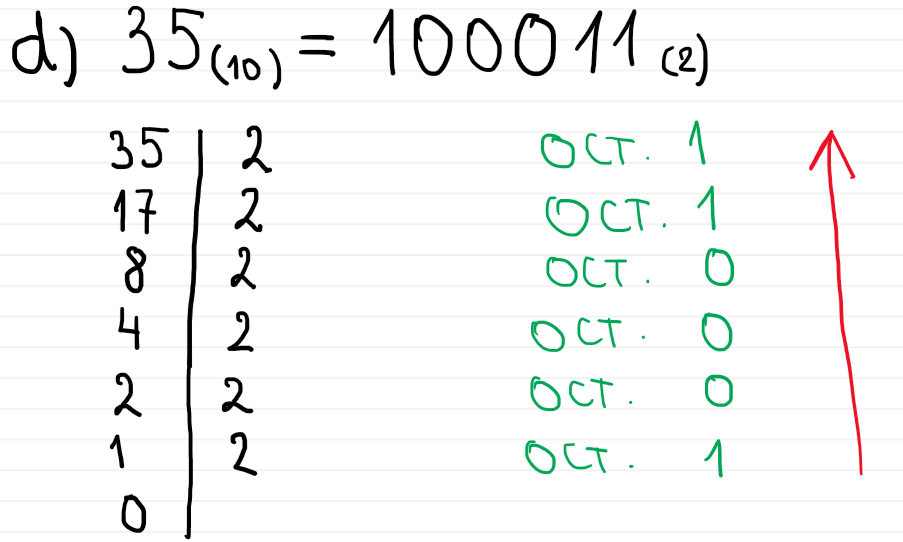 d) 35(10) = 100011(2)
35 | 2 ост. 1
17 | 2 ост. 1
8 | 2 ост. 0
4 | 2 ост. 0
2 | 2 ост. 0
1 | 2 ост. 1
0 |